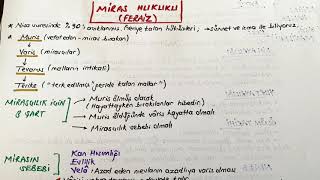 MİRAS HUKUKU
(FERAİZ)
* Nisa suresinde %90 açıklanmış. Geriye kalan hükümleri → sünnet ve icma ile biliyoruz.
* Muris (vefat eden - miras bırakan)
→ Varis (mirasçılar)
→ Tevarüs (malların intikali)
→ Tereke (terk edilmiş/geride kalan mallar)
MİRASÇILIK İÇİN 3 ŞART
→ Muris ölmüş olacak
(Hayattayken bırakılanlar hibedir)
→ Muris öldüğünde varis olmalı
→ Mirasçılık sebebi olmalı
MİRASIN SEBEBİ
Kan Hısımlığı
Evlilik
Velâ: Azad eden mevlanın azadlıya varis olması